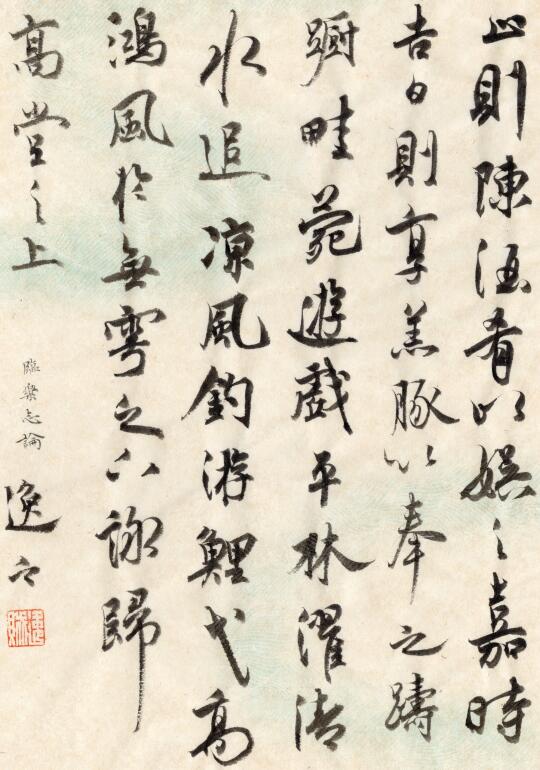 止則陳酒肴以娱之嘉時
吉日則享羔豚以奉之躊
躕畦菀遊戲平林濯清
水追凉風釣游鯉弋高
鴻風於無雩之下詠歸
高堂之上
臨樂志論
逸